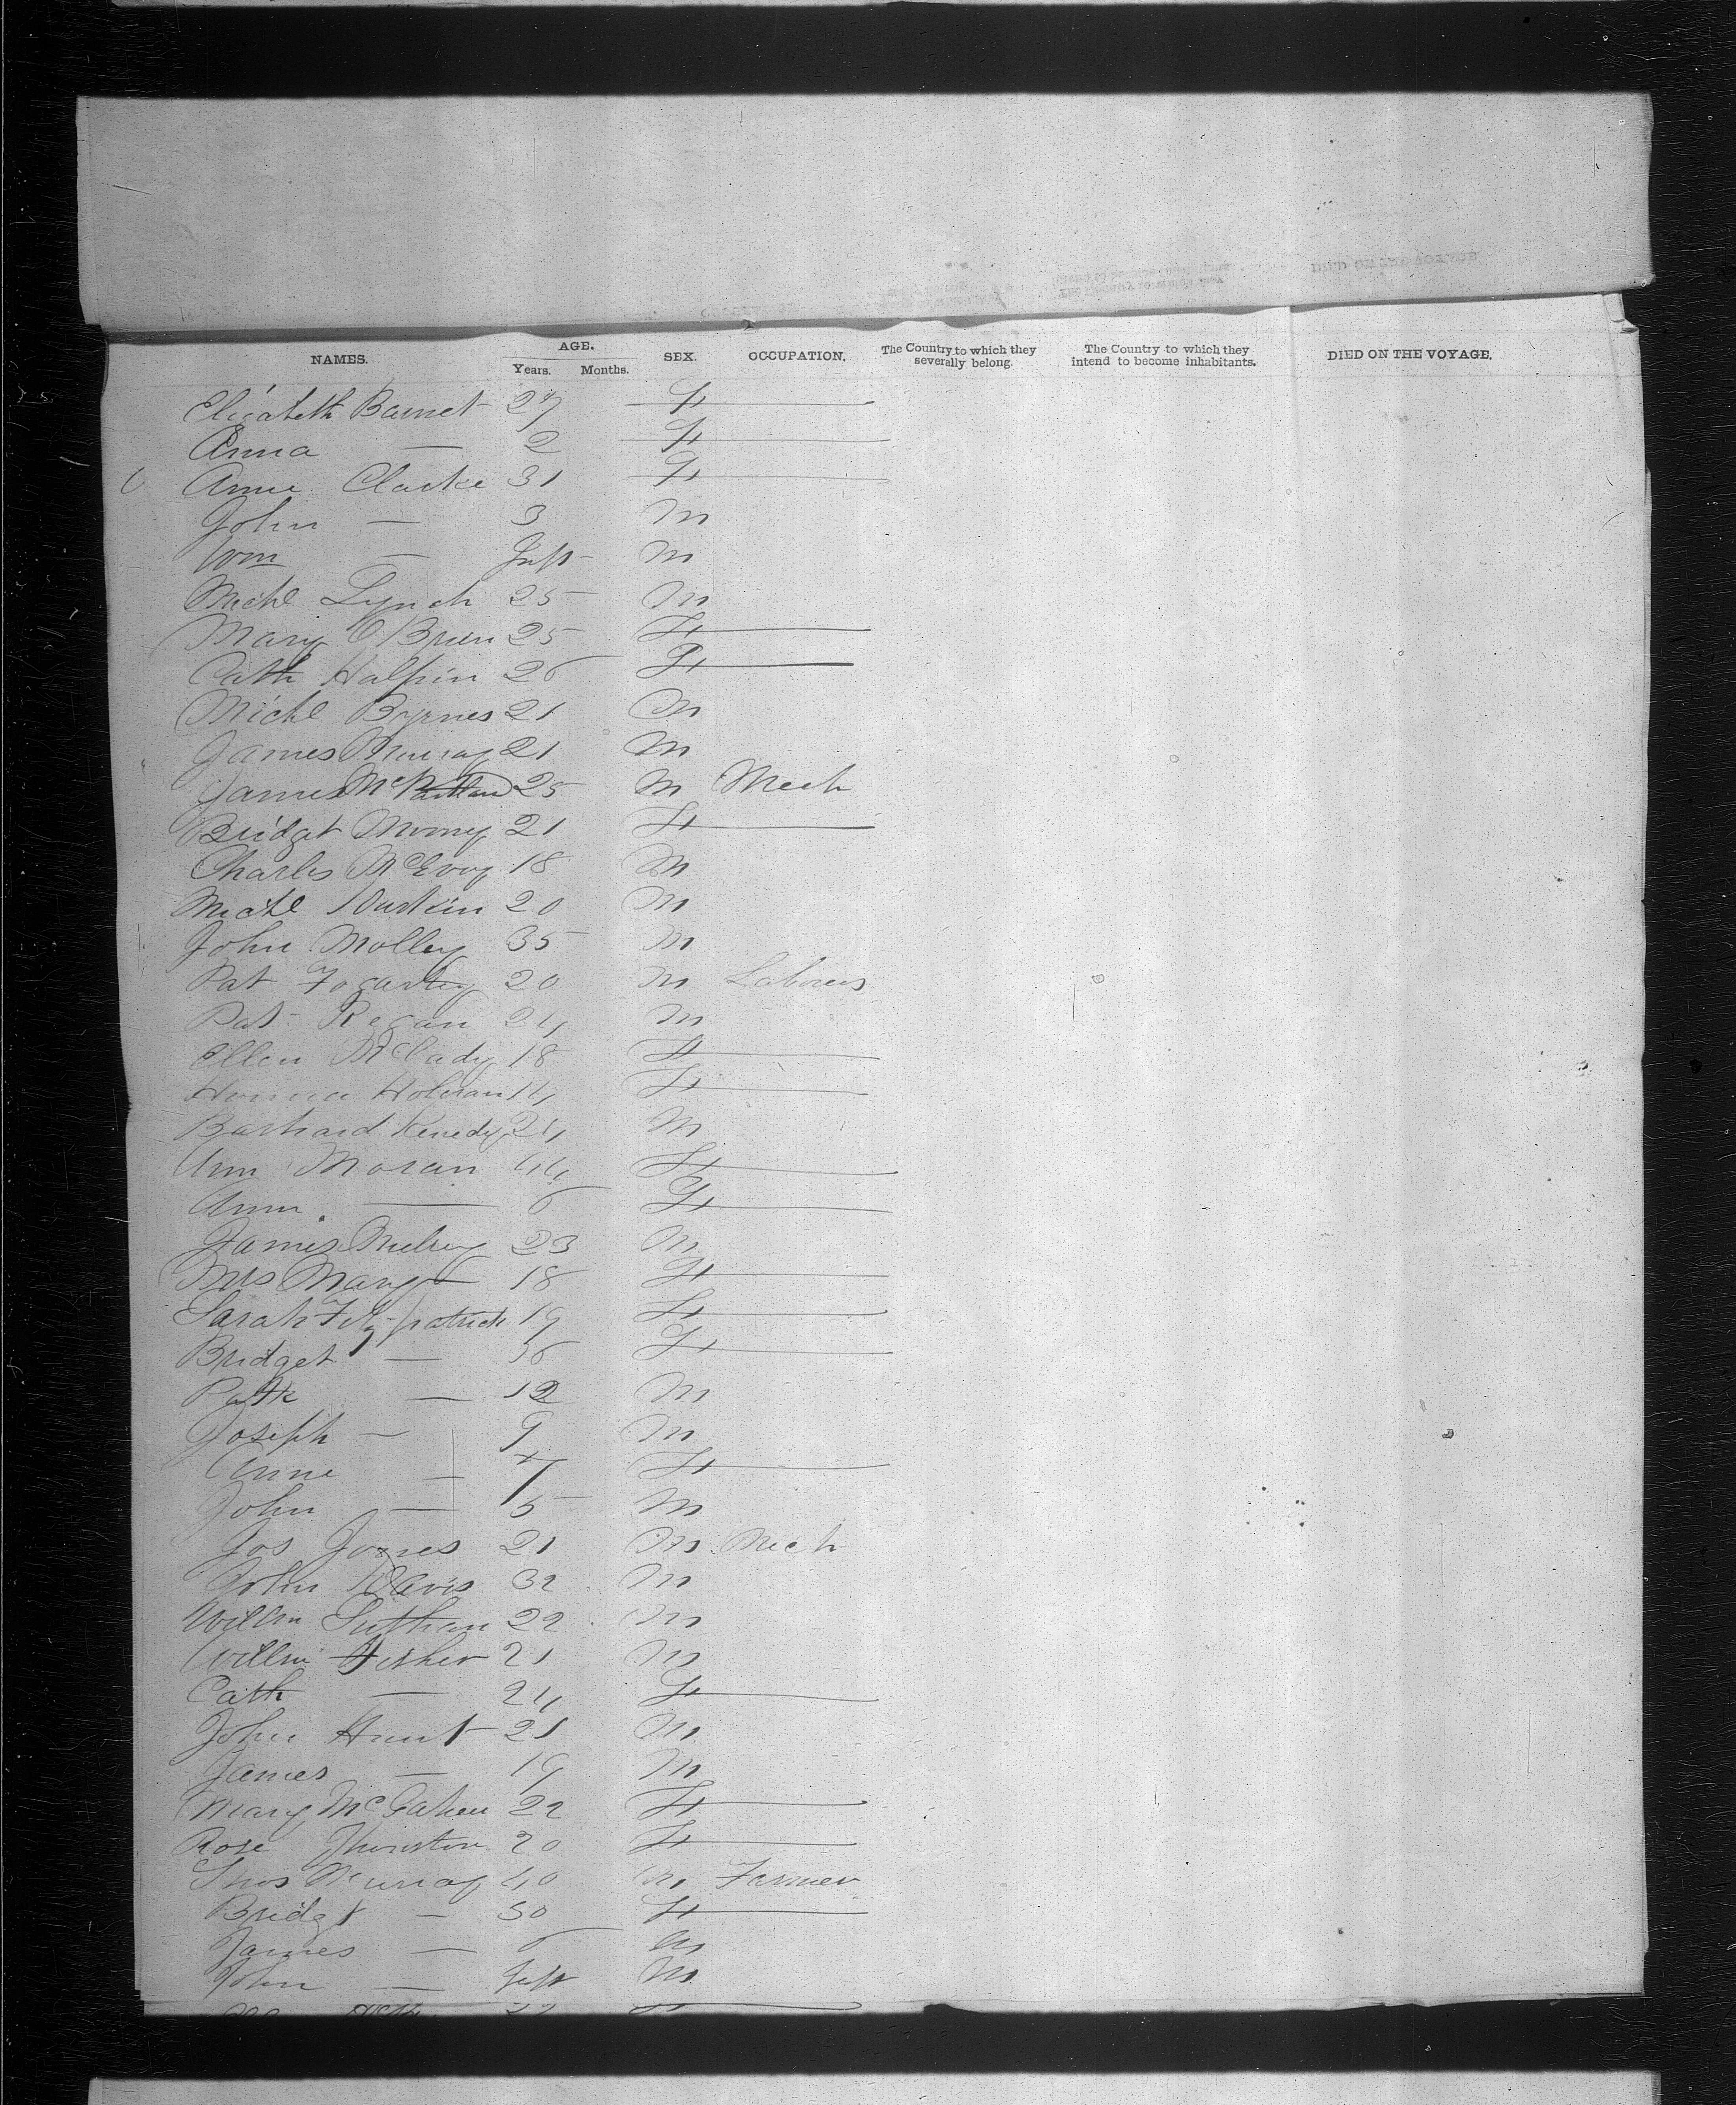 NAMES. AGE. Years. Months. SEX. OCCUPATION. The Country to which they severally belong. The Country to which they intend to become inhabitants. DIED ON THE VOYAGE.
Elizabeth Barnet 27 F
Anna — 2 F
Annie Clarke 31 F
John — 3 M
Wm — Inft M
Michl Lynch 25 M
Mary O'Brien 25 F
Cath Halpin 26 F
Michl Byrnes 21 M
James Murray 21 M
James McPartlan 25 M Mech
Bridget Mooney 21 F
Charles McEvoy 18 M
Michl Durkin 20 M
John Molloy 35 M
Pat Fogarty 20 M Laborers
Pat Regan 24 M
Ellen McCady 18 F
Honora Holeran 14 F
Kenedy 24 M
Ann Moran 44 F
Ann — 6 F
James 23 M
Mrs Mary — 18 F
Sarah Fitzpatrick 19 F
Bridget — 36 F
Patk — 12 M
Joseph — 9 M
Anne — 7 F
John — 5 M
Jos Jones 21 M Mech
John Davis 32 M
Willm 22 M
Willm Fisher 21 M
Cath — 24 F
John Hunt 21 M
James — 19 M
Mary McGahen 22 F
Rose Thornton 20 F
Thos Murray 40 M Farmer
Bridgt — 30 F
James — 6 M
John — Inft M